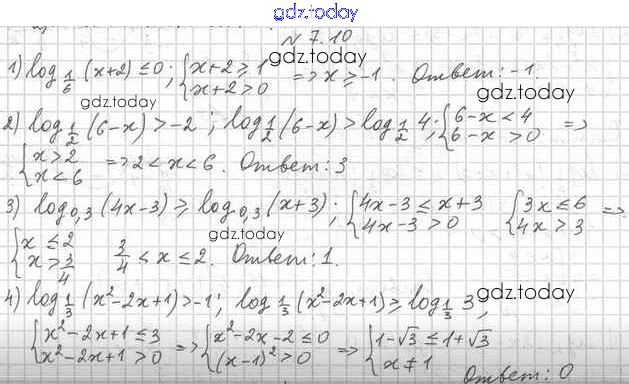 gdz.today
N 7.10
gdz.today
1) log_{1/6} (x+2) ≤ 0; {x+2 ≥ 1 {x+2 > 0 => x ≥ -1. Ответ: -1.
gdz.today gdz.today
2) log_{1/2} (6-x) > -2; log_{1/2} (6-x) > log_{1/2} 4; {6-x < 4 {6-x > 0 =>
{x > 2 {x < 6 => 2 < x < 6. Ответ: 3
gdz.today
3) log_{0,3} (4x-3) ≥ log_{0,3} (x+3); {4x-3 ≤ x+3 {4x-3 > 0 {3x ≤ 6 {4x > 3 =>
gdz.today
{x ≤ 2 {x > 3/4 3/4 < x ≤ 2. Ответ: 1.
gdz.today
4) log_{1/3} (x²-2x+1) > -1; log_{1/3} (x²-2x+1) ≥ log_{1/3} 3;
{x²-2x+1 ≤ 3 {x²-2x+1 > 0 => {x²-2x-2 ≤ 0 {(x-1)² > 0 => {1-√3 ≤ 1+√3 {x ≠ 1
Ответ: 0
gdz.today